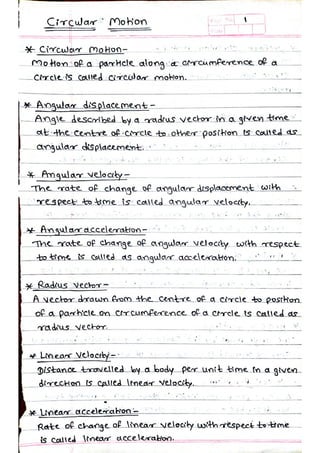 Circular Motion
1
* Circular motion-
Motion of a particle along a circumference of a
circle is called circular motion.
* Angular displacement-
Angle described by a radius vector in a given time
at the centre of circle to other position is called as
angular displacement.
* Angular velocity-
The rate of change of angular displacement with
respect to time is called angular velocity.
* Angular acceleration-
The rate of change of angular velocity with respect
to time is called as angular acceleration.
* Radius vector-
A vector drawn from the centre of a circle to position
of a particle on circumference of a circle is called as
radius vector.
* Linear Velocity-
Distance travelled by a body per unit time in a given
direction is called linear velocity.
* Linear acceleration-
Rate of change of linear velocity with respect to time
is called linear acceleration.